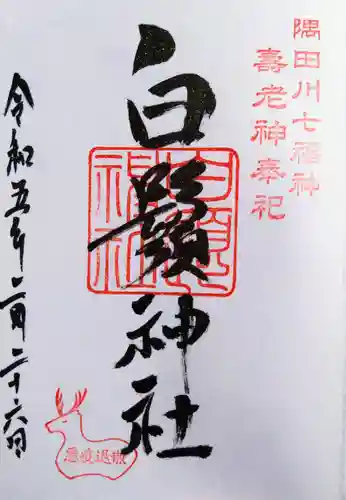 隅田川七福神
壽老神奉祀
白鬚神社
白鬚神社
令和五年二月二十六日
悪疫退散